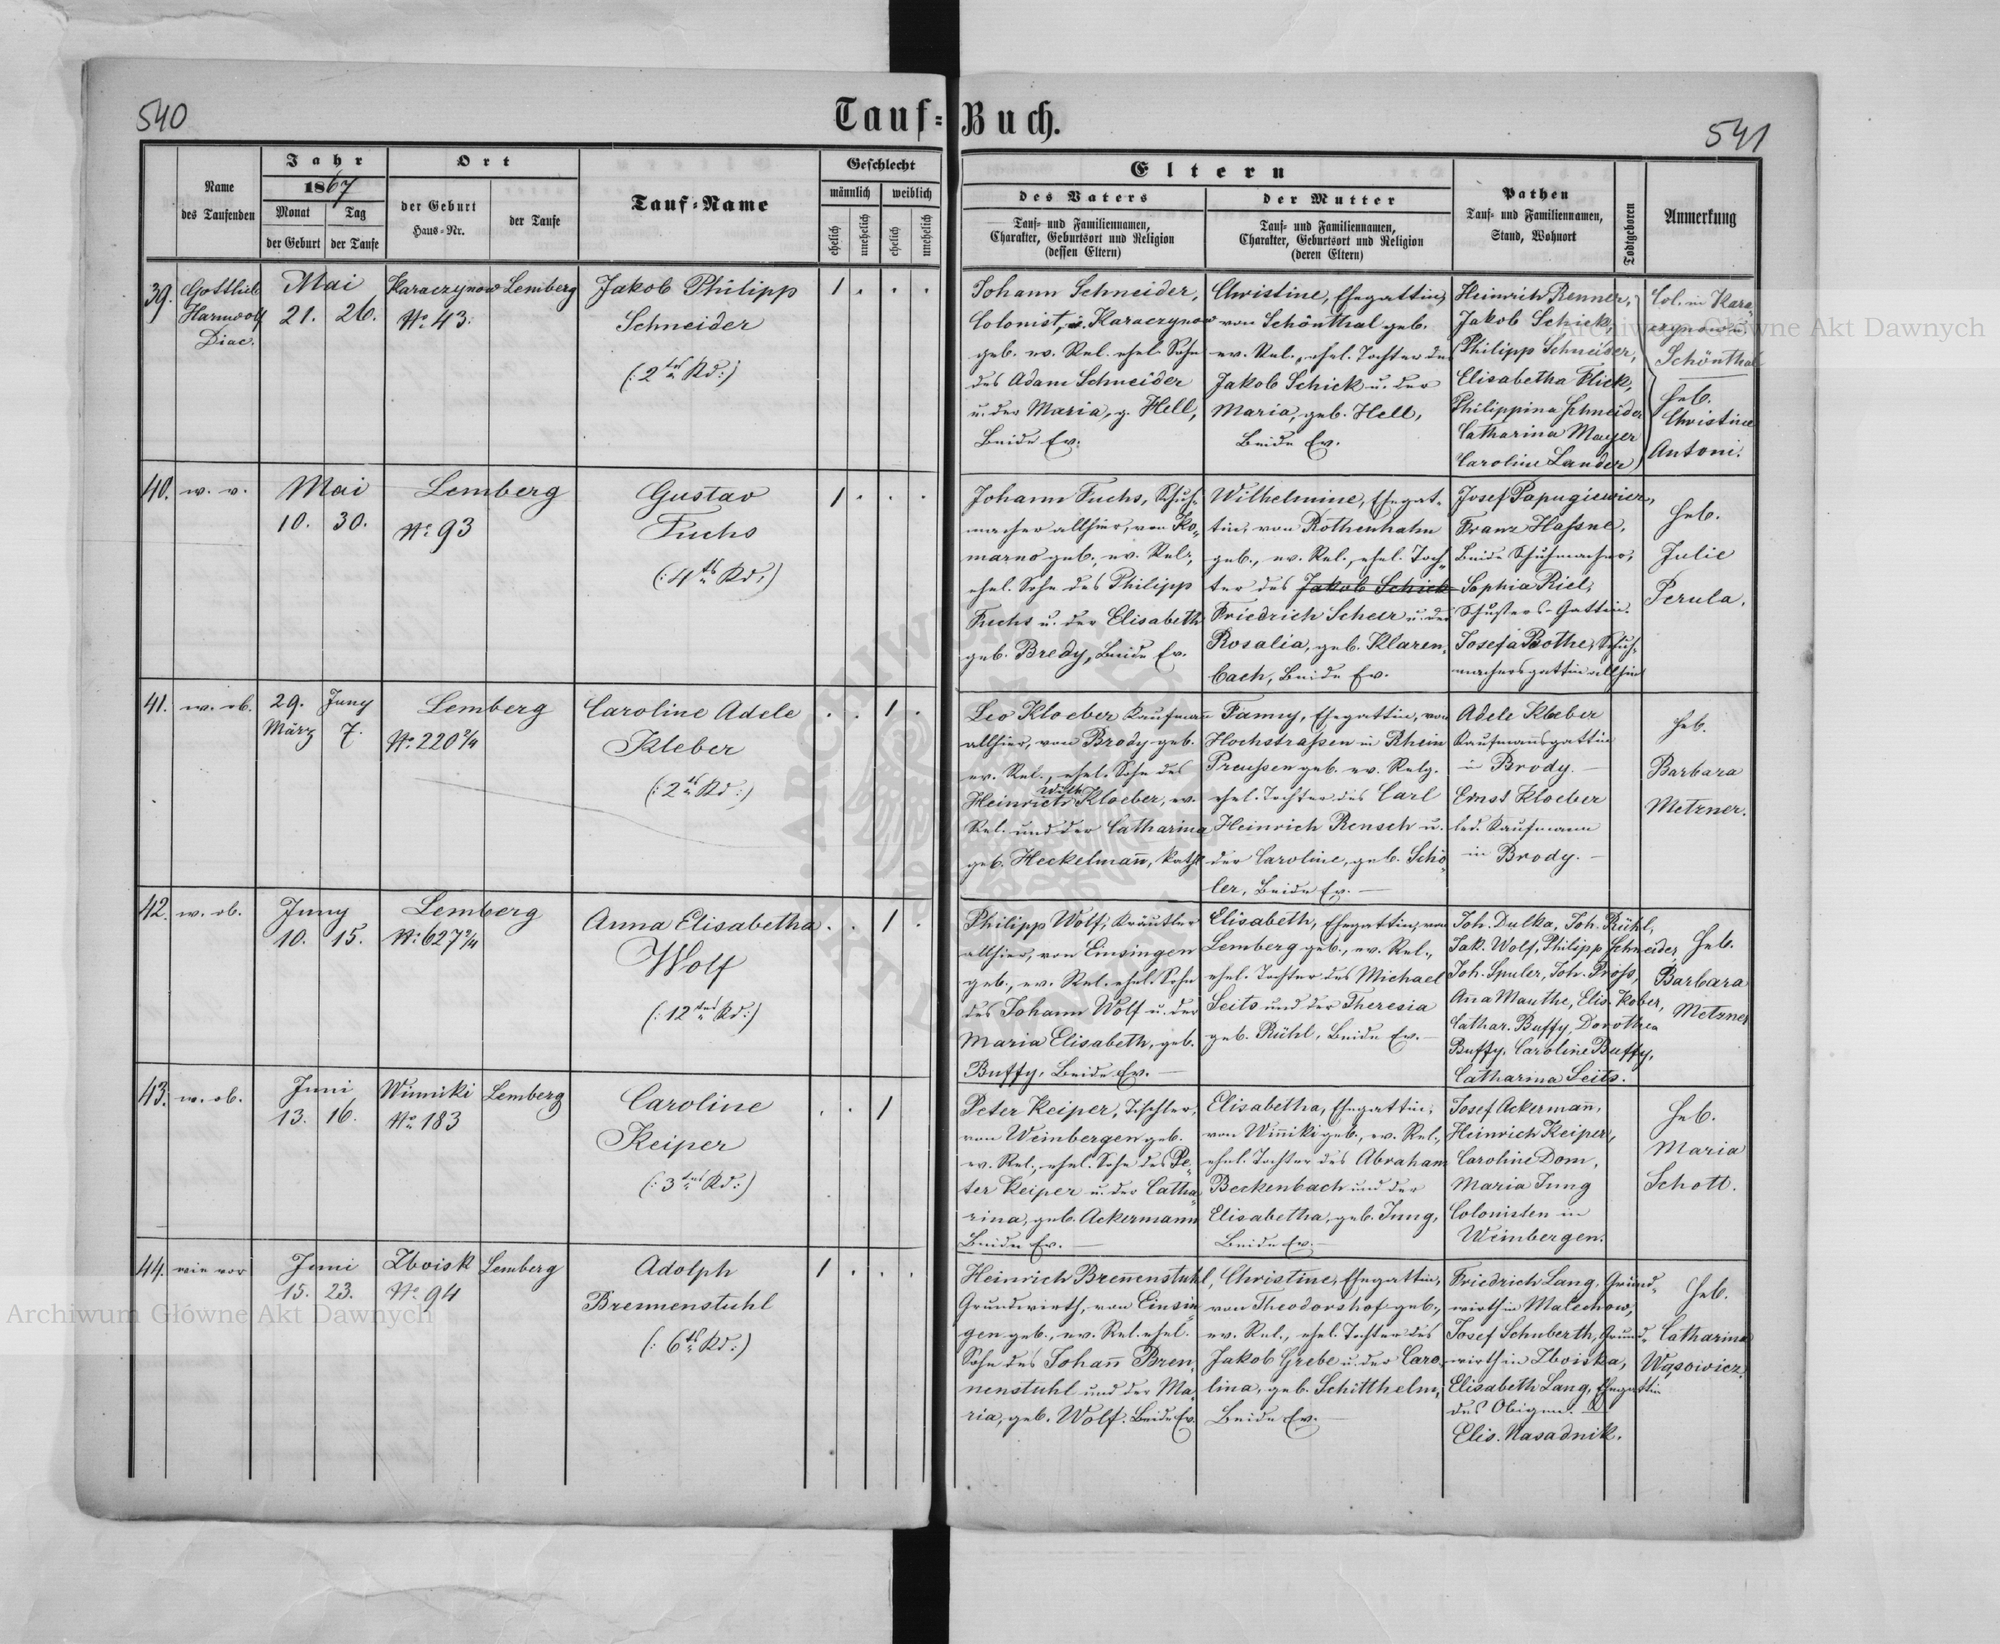 540
Tauf-Buch.
541
Name
des Taufenden
Jahr
1867
Monat
Tag
der Geburt
der Taufe
Ort
der Geburt
Haus-Nr.
der Taufe
Tauf-Name
Geschlecht
männlich
weiblich
ehelich
unehelich
ehelich
unehelich
Eltern
des Vaters
Tauf- und Familiennamen,
Charakter, Geburtsort und Religion
(dessen Eltern)
der Mutter
Tauf- und Familiennamen,
Charakter, Geburtsort und Religion
(deren Eltern)
Pathen
Tauf- und Familiennamen,
Stand, Wohnort
Todtgeboren
Anmerkung
39.
Gottlieb
Harmwolf
Diac.
Mai
21. 26.
Karaczynow
No. 43.
Lemberg
Jakob Philipp
Schneider
(: 2tes Kd :)
1 . . .
Johann Schneider,
Colonist, in Karaczynow
geb. ev. Rel. ehel. Sohn
des Adam Schneider
u. der Maria, g. Hell,
Beide Ev.
Christine, Ehegattin,
von Schönthal geb.
ev. Rel., ehel. Tochter des
Jakob Schick u. der
Maria, geb. Hell,
Beide Ev.
Heinrich Renner,
Jakob Schick,
Philipp Schneider,
Elisabetha Flick,
Philippina Schneider
Catharina Mayer
Caroline Lander
Col. in Kara-
czynow u.
Schönthal
Heb.
Christine
Antoni.
40.
w. v.
Mai
10. 30.
Lemberg
No. 93
Gustav
Fuchs
(: 4tes Kd :)
1 . . .
Johann Fuchs, Schuh-
macher allhier, von Ko-
marno geb., ev. Rel.,
ehel. Sohn des Philipp
Fuchs u. der Elisabeth
geb. Bredy, Beide Ev.
Wilhelmine, Ehegat-
tin, von Rothenhahn
geb., ev. Rel., ehel. Toch-
ter des Jakob Schick
Friedrich Scheer u. der
Rosalia, geb. Klaren-
bach, Beide Ev.
Josef Papugiewicz,
Franz Hassne,
Beide Schuhmacher,
Sophia Riel,
Schusters-Gattin.
Josefa Bothe, Schuh-
machersgattin allhier
Heb.
Julie
Perula.
41.
w. ob.
29. Juny
März 7.
Lemberg
No. 220 2/4
Caroline Adele
Kleber
(: 2tes Kd :)
. . 1 .
Leo Kloeber Kaufmann
allhier, von Brody geb.
ev. Rel., ehel. Sohn des
Heinrich Kloeber, ev.
Rel. und der Catharina
geb. Heckelmann, kath.
Fanny, Ehegattin, von
Hochstrassen in Rhein
Preussen geb. ev. Relg.
ehel. Tochter des Carl
Heinrich Rensch u.
der Caroline, geb. Schö-
ler, Beide Ev.
Adele Kloeber
Kaufmannsgattin
in Brody.
Ernst Kloeber
led. Kaufmann
in Brody.
Heb.
Barbara
Metzner.
42.
w. ob.
Juny
10. 15.
Lemberg
No. 627 2/4
Anna Elisabetha
Wolf
(: 12tes Kd :)
. . 1 .
Philipp Wolf, Kräutler
allhier, von Einsingen
geb., ev. Rel. ehel. Sohn
des Johann Wolf u. der
Maria Elisabeth, geb.
Buffy, Beide Ev.
Elisabeth, Ehegattin, von
Lemberg geb., ev. Rel.,
ehel. Tochter des Michael
Seits und der Theresia
geb. Rühl, Beide Ev.
Joh. Dulka, Joh. Rühl,
Jak. Wolf, Philipp Schneider,
Joh. Spuler, Joh. Pross,
Anna Mauthe, Elis. Kober,
Cathar. Buffy, Dorothea
Buffy, Caroline Buffy,
Catharina Seits.
Heb.
Barbara
Metzner
43.
w. ob.
Juni
13. 16.
Winniki
No. 183
Lemberg
Caroline
Keiper
(: 3tes Kd :)
. . 1
Peter Keiper, Tischler,
von Weinbergen geb.
ev. Rel., ehel. Sohn des Pe-
ter Keiper u. der Catha-
rina, geb. Ackermann
Beide Ev.
Elisabetha, Ehegattin,
von Winniki geb., ev. Rel.,
ehel. Tochter des Abraham
Beckenbach und der
Elisabetha, geb. Jung,
Beide Ev.
Josef Ackermann,
Heinrich Keiper,
Caroline Dom,
Maria Jung
Colonisten in
Weinbergen.
Heb.
Maria
Schott.
44.
wie vor
Juni
15. 23.
Zboisk
No. 94
Lemberg
Adolph
Brennenstuhl
(: 6tes Kd :)
1 . . .
Heinrich Brennenstuhl,
Grundwirth, von Einsin-
gen geb., ev. Rel. ehel.
Sohn des Johann Bren-
nenstuhl und der Ma-
ria, geb. Wolf. Beide Ev.
Christine, Ehegattin,
von Theodorshof geb.,
ev. Rel., ehel. Tochter des
Jakob Grebe u. der Caro-
lina, geb. Schitthelm,
Beide Ev.
Friedrich Lang, Grund-
wirth in Malechow,
Josef Schuberth, Grund-
wirth in Zboiska,
Elisabeth Lang, Ehegattin
des Obigen.
Elis. Nasadnik.
Heb.
Catharina
Wąsowicz.
Archiwum Główne Akt Dawnych
Archiwum Główne Akt Dawnych